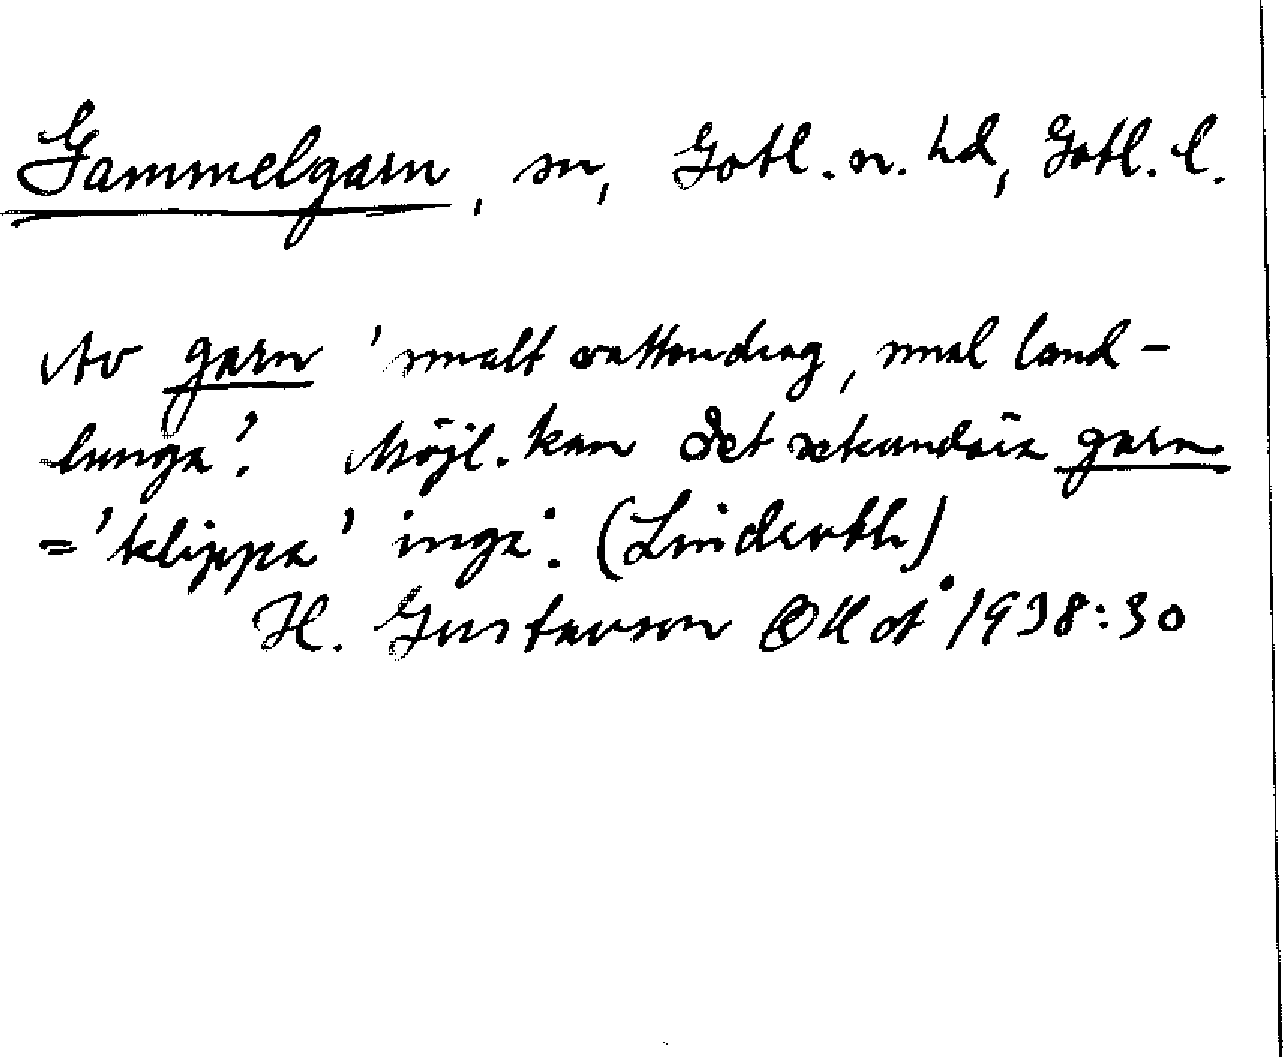 Gammelgarn, sn, Gotl. n. hd, Gotl. l.
Av garn 'smalt vattendrag, smal land-
tunga'. Möjl. kan det sekundära garn
= 'klippa' ingå. (Linderoth)
H. Gustavson 1938:30